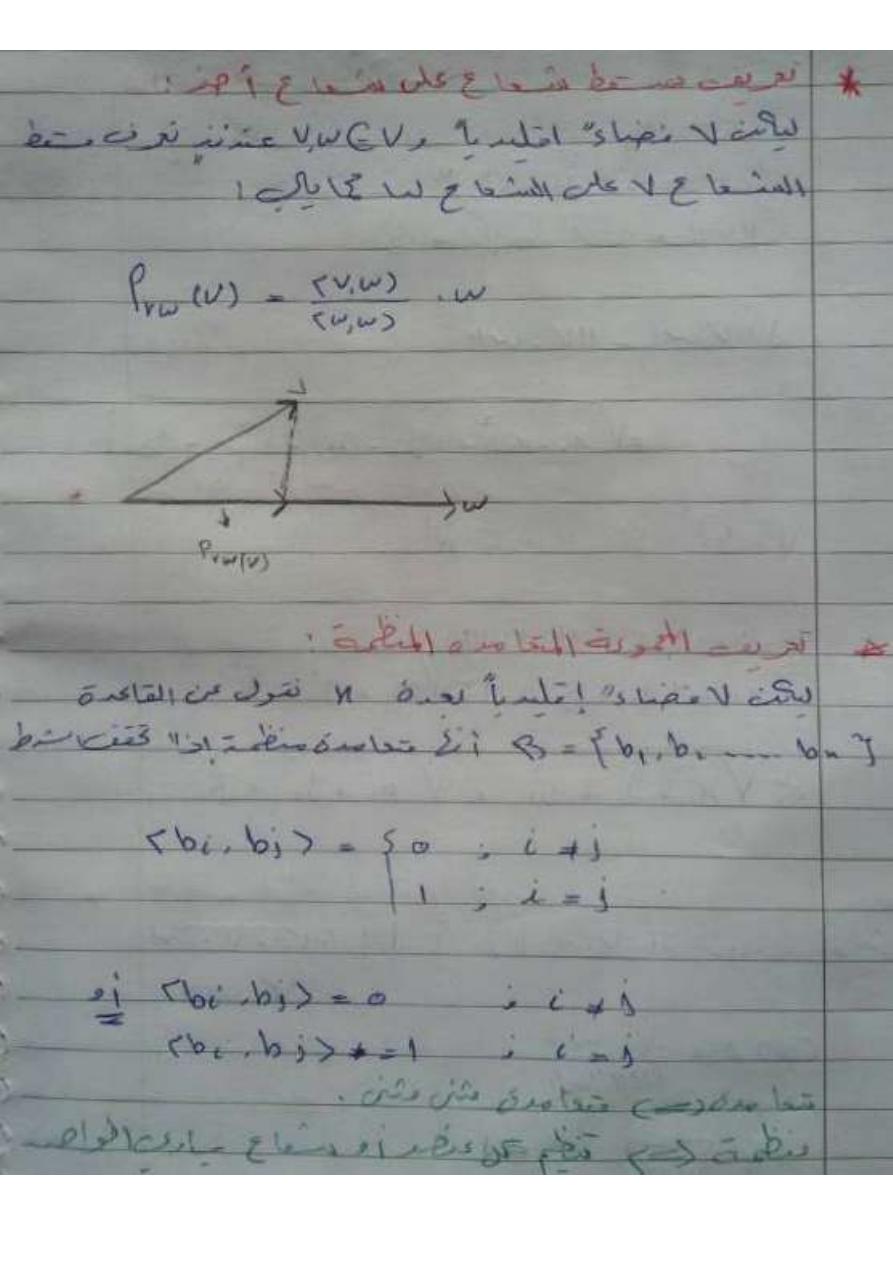 * تعريف مسقط شعاع على شعاع آخر :
ليكن V فضاءً اقليدياً و V,w ∈ V عندئذٍ نعرف مسقط
الشعاع V على الشعاع w كما يلي :
Prw (V) = <V,w> / <w,w> . w
V
w
Prw(V)
* تعريف المجموعة المتعامدة المنظمة :
ليكن V فضاءً إقليدياً بعده n نقول عن القاعدة
B = {b1, b2 ..... bn} أنها متعامدة منظمة إذا تحقق الشرط
<bi, bj> = { 0 ; i ≠ j
1 ; i = j
أو <bi, bj> = 0 ; i ≠ j
<bi, bj> = 1 ; i = j
متعامدة <=> متعامدة مثنى مثنى .
منظمة <=> تنظيم كل عنصر أو شعاع يساوي الواحد